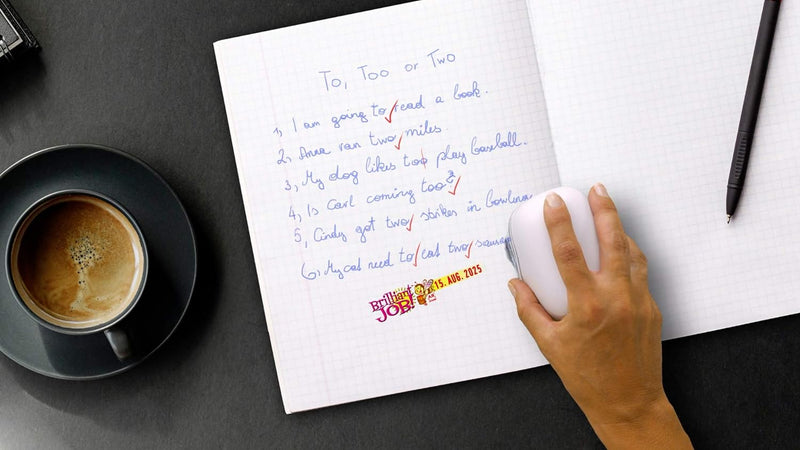 To, Too or Two
1, I am going to read a book.
2, Anna ran two miles.
3, My dog likes too play baseball.
4, Is Carl coming too?
5, Cindy got two strikes in bowling
6, My cat need to eat two
Brilliant JOB!
15. AUG. 2025